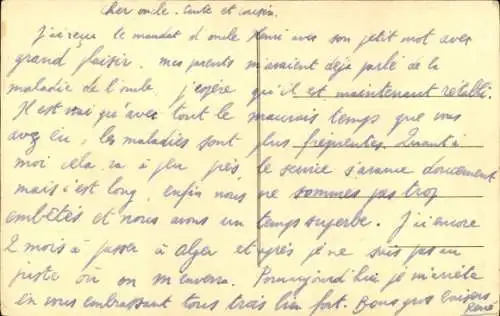 Cher oncle. tante et cousin.
J'ai reçu le mandat d'oncle Henri avec son petit mot avec
grand plaisir. mes parents m'avaient déja parlé de la
maladie de l'oncle. j'espère qu'il est maintenant rétabli.
Il est vrai qu'avec tout le mauvais temps que vous
avez eu, les maladies sont plus fréquentes. Quant à
moi cela va à peu près, le service s'avance doucement
mais c'est long, enfin nous ne sommes pas trop
embêtés et nous avons un temps superbe. J'ai encore
2 mois à passer à Alger et après je ne sais pas au
juste où on m'enverra. Pour aujourd'hui, je m'arrête
en vous embrassant tous trois bien fort. Bons gros baisers
René